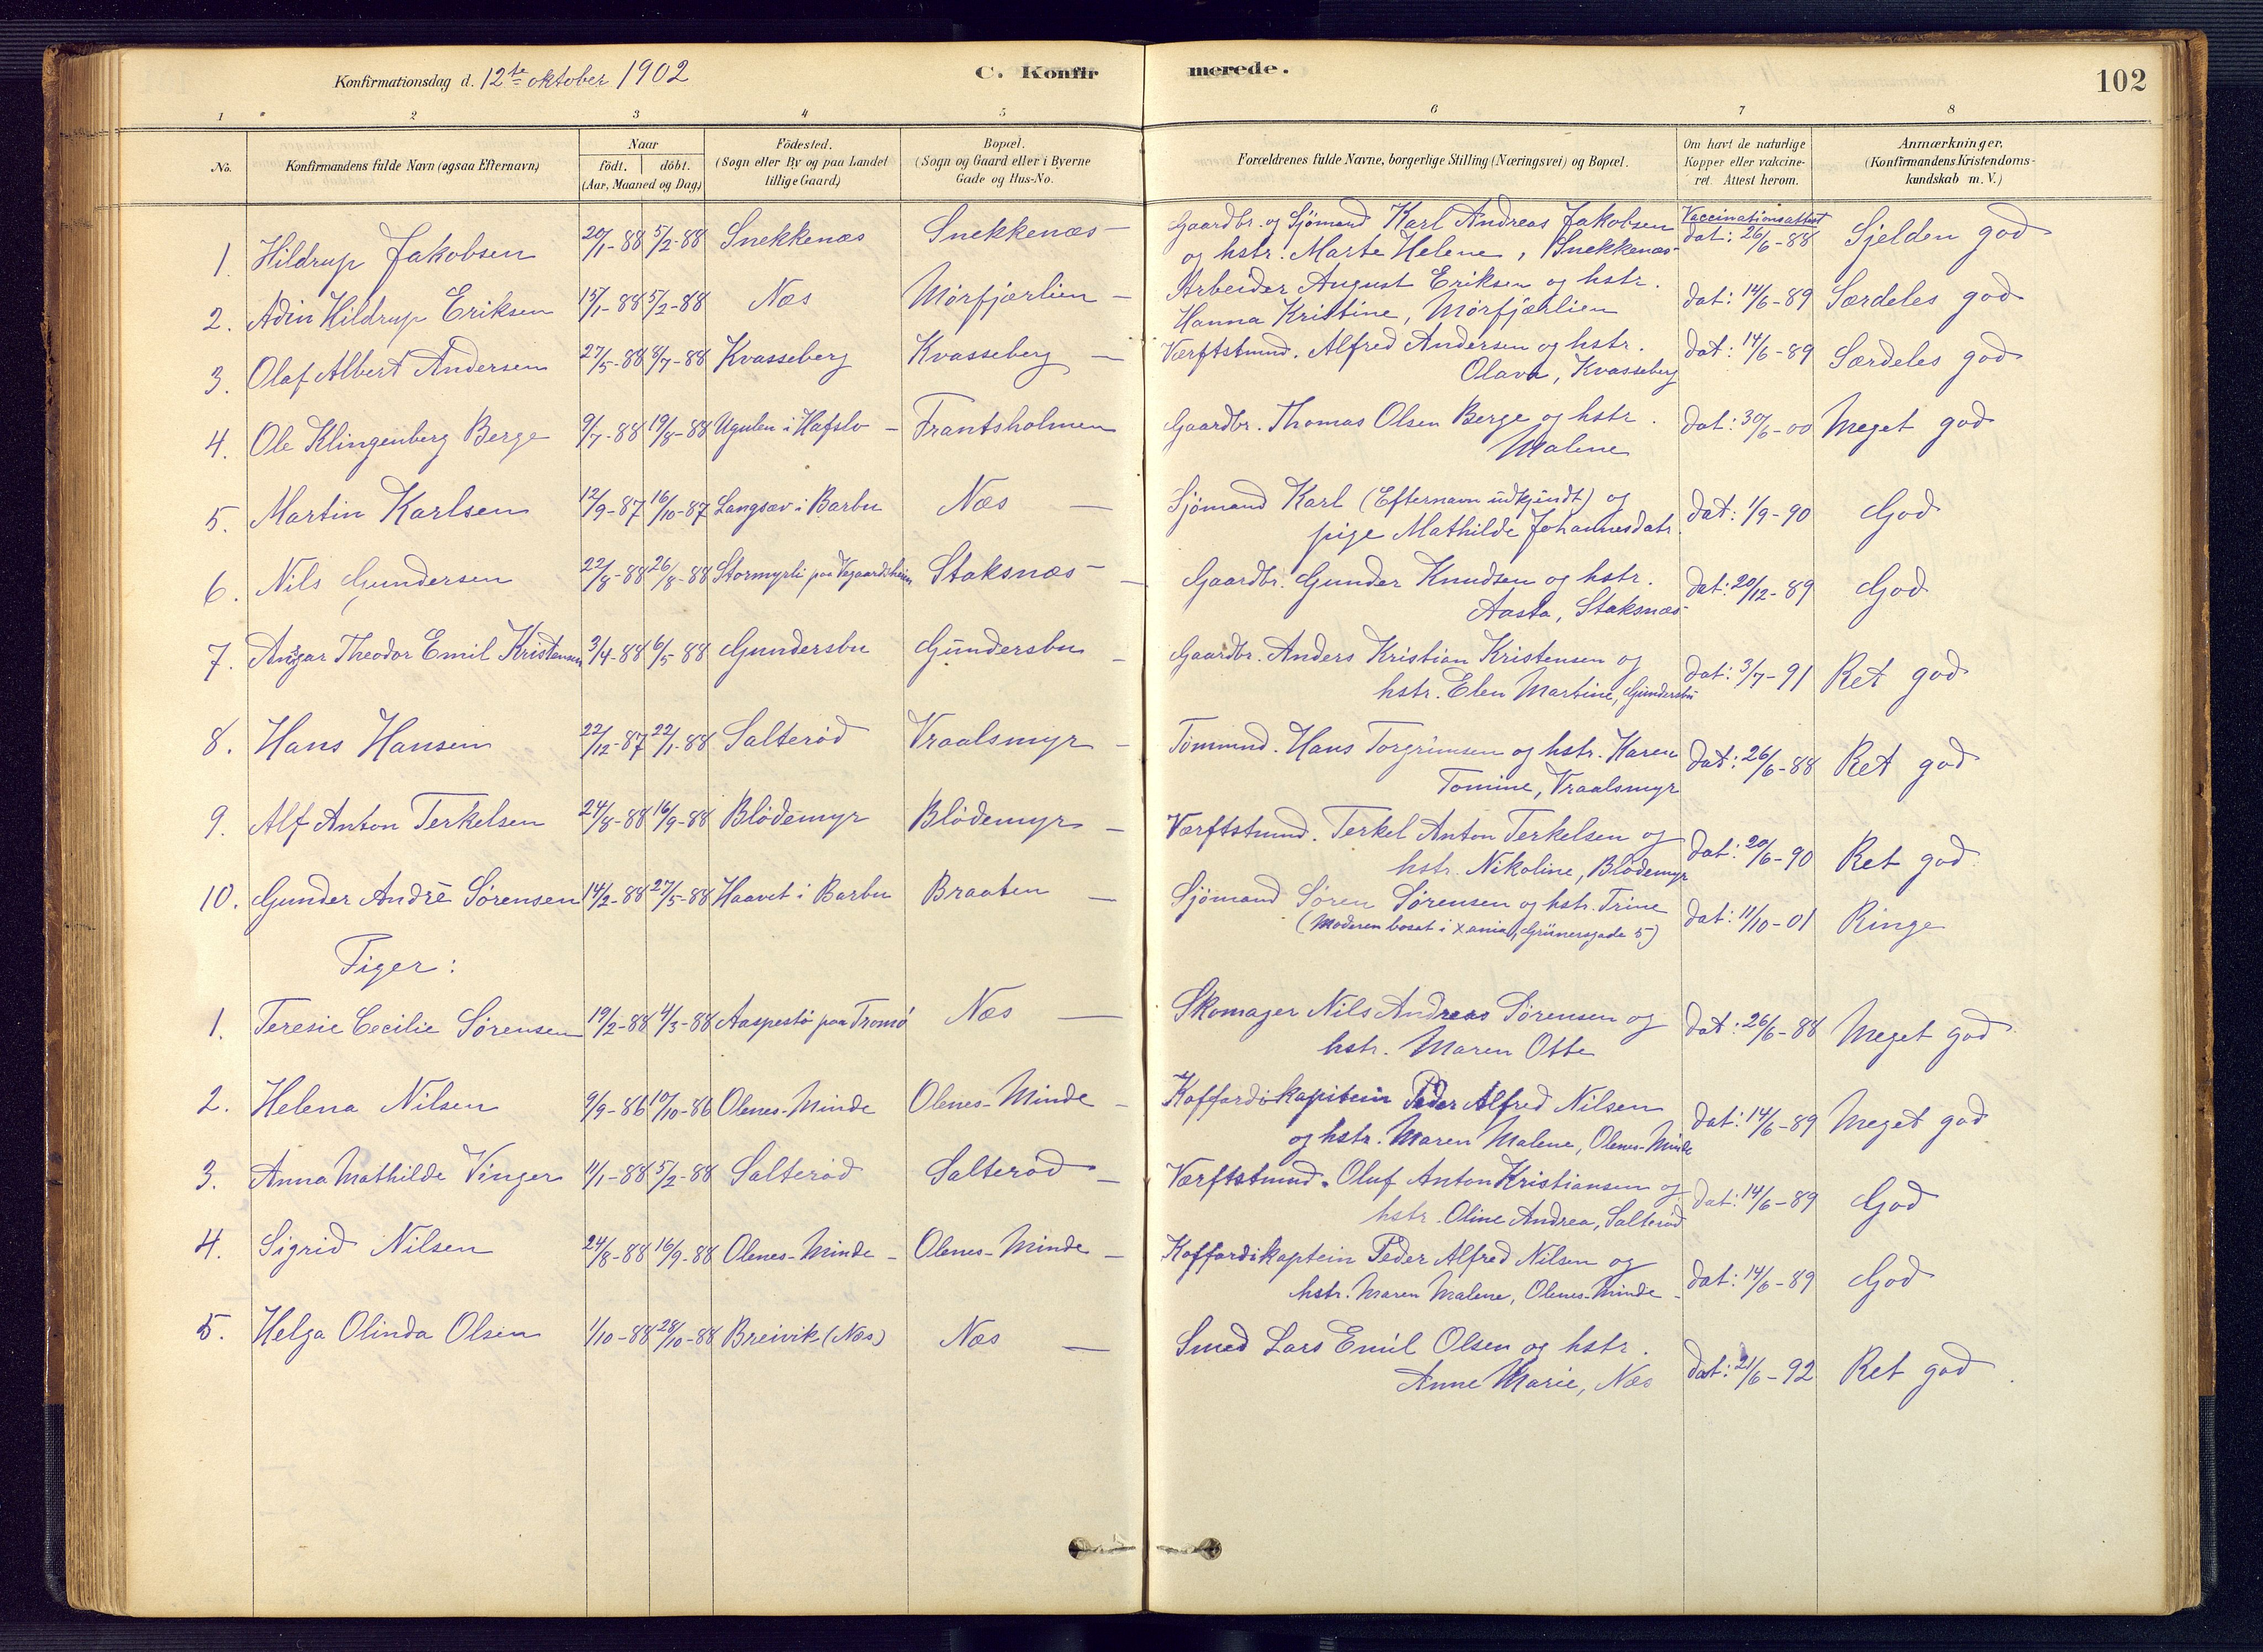 Konfirmationsdag d. 12te oktober 1902
C. Konfirmerede.
102
1 2 3 4 5 6 7 8
No.
Konfirmandens fulde Navn (ogsaa Efternavn)
Naar
födt. döbt.
(Aar, Maaned og Dag)
Födested.
(Sogn eller By og paa Landet
lillige Gaard)
Bopæl.
(Sogn og Gaard eller i Byerne
Gade og Hus-No.
Forældrenes fulde Navne, borgerlige Stilling (Næringsvei) og Bopæl.
Om havt de naturlige
Kopper eller vakcine-
ret. Attest herom.
Anmærkninger.
(Konfirmandens Kristendoms-
kundskab m. V.)
1. Hildrup Jakobsen 20/1-88 5/2-88 Snekkenæs Snekkenæs - Gaardbr. og Sjömand Karl Andreas Jakobsen Vaccinationsattest
og hstr. Marte Helene, Snekkenæs dat: 26/6-88 Sjelden god
2. Adin Hildrup Eriksen 15/1-88 5/2-88 Næs Mörfjærlien - Arbeider August Eriksen og hstr. dat: 14/6-89 Særdeles god
Hanna Kristine, Mörfjærlien
3. Olaf Albert Andersen 27/5-88 8/7-88 Kvasseberg Kvasseberg - Værftstmnd. Alfred Andersen og hstr. dat: 14/6-89 Særdeles god
Olava, Kvasseberg
4. Ole Klingenberg Berge 9/7-88 19/8-88 Ugulen i Hafslo - Frantsholmen Gaardbr. Thomas Olsen Berge og hstr. dat: 30/6-00 Meget god
Malene
5. Martin Karlsen 12/9-87 16/10-87 Langsæv i Barbu Næs - Sjömand Karl (Efternavn udkjendt) og dat: 1/9-90 God
pige Mathilde Johannesdatr.
6. Nils Gundersen 22/8-88 26/8-88 Stormyrli paa Vegaardsheien Staksnæs - Gaardbr. Gunder Knudsen og hstr. dat: 20/12-89 God
Aasta, Staksnæs
7. Ansgar Theodor Emil Kristensen 3/4-88 6/5-88 Gundersbu Gundersbu - Gaardbr. Anders Kristian Kristensen og dat: 3/7-91 Ret god
hstr. Elen Martine, Gundersbu
8. Hans Hansen 22/12-87 22/1-88 Salteröd Vraalsmyr - Tömmnd. Hans Torgrimsen og hstr. Karen dat: 26/6-88 Ret god
Tomine, Vraalsmyr
9. Alf Anton Terkelsen 24/8-88 16/9-88 Blödemyr Blödemyr - Værftstmnd. Terkel Anton Terkelsen og dat: 20/6-90 Ret god
hstr. Nikoline, Blödemyr
10. Gunder André Sörensen 14/2-88 27/5-88 Haavet i Barbu Braaten - Sjömand Sören Sörensen og hstr. Trine dat: 11/10-01 Ringe
(Moderen bosat i Xania, Grünersgade 5)
Piger:
1. Teresie Cecilie Sörensen 19/2-88 4/3-88 Aaspestö paa Tromö Næs - Skomager Nils Andreas Sörensen og dat: 26/6-88 Meget god
hstr. Maren Otte
2. Helena Nilsen 9/9-86 10/10-86 Olenes-Minde Olenes-Minde - Koffardikapitein Peder Alfred Nilsen dat: 14/6-89 Meget god
og hstr. Maren Malene, Olenes-Minde
3. Anna Mathilde Vinger 11/1-88 5/2-88 Salteröd Salteröd - Værftstmnd. Oluf Anton Kristiansen og dat: 14/6-89 God
hstr. Oline Andrea, Salteröd
4. Sigrid Nilsen 24/8-88 16/9-88 Olenes-Minde - Olenes-Minde - Koffardikaptein Peder Alfred Nilsen og dat: 14/6-89 God
hstr. Maren Malene, Olenes-Minde
5. Helga Olinda Olsen 1/10-88 28/10-88 Breivik (Næs) Næs - Smed Lars Emil Olsen og hstr. dat: 21/6-92 Ret god
Anne Marie, Næs